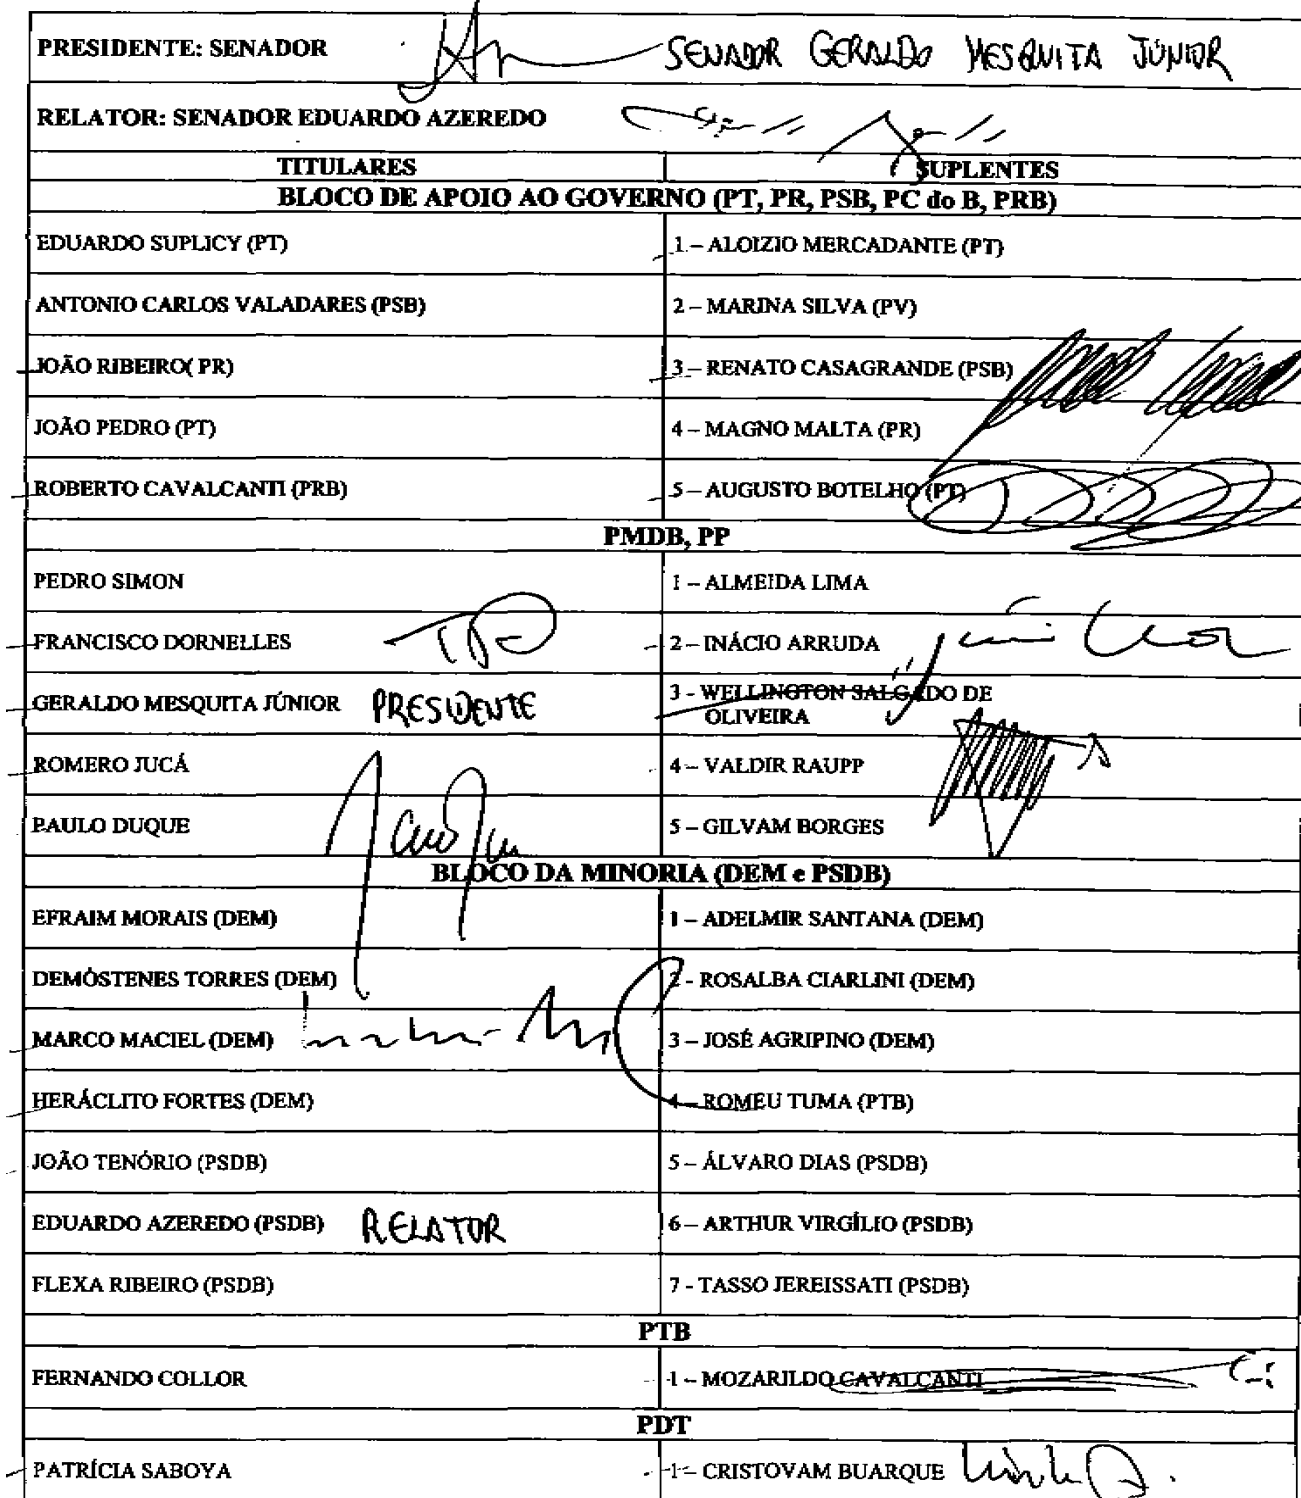 PRESIDENTE: SENADOR SENADOR GERALDO MESQUITA JÚNIOR
RELATOR: SENADOR EDUARDO AZEREDO
TITULARES SUPLENTES
BLOCO DE APOIO AO GOVERNO (PT, PR, PSB, PC do B, PRB)
EDUARDO SUPLICY (PT) 1 – ALOIZIO MERCADANTE (PT)
ANTONIO CARLOS VALADARES (PSB) 2 – MARINA SILVA (PV)
JOÃO RIBEIRO( PR) 3 – RENATO CASAGRANDE (PSB)
JOÃO PEDRO (PT) 4 – MAGNO MALTA (PR)
ROBERTO CAVALCANTI (PRB) 5 – AUGUSTO BOTELHO (PT)
PMDB, PP
PEDRO SIMON 1 – ALMEIDA LIMA
FRANCISCO DORNELLES 2 – INÁCIO ARRUDA
GERALDO MESQUITA JÚNIOR PRESIDENTE 3 - WELLINGTON SALGADO DE
OLIVEIRA
ROMERO JUCÁ 4 – VALDIR RAUPP
PAULO DUQUE 5 – GILVAM BORGES
BLOCO DA MINORIA (DEM e PSDB)
EFRAIM MORAIS (DEM) 1 – ADELMIR SANTANA (DEM)
DEMÓSTENES TORRES (DEM) 2 - ROSALBA CIARLINI (DEM)
MARCO MACIEL (DEM) 3 – JOSÉ AGRIPINO (DEM)
HERÁCLITO FORTES (DEM) 4 – ROMEU TUMA (PTB)
JOÃO TENÓRIO (PSDB) 5 – ÁLVARO DIAS (PSDB)
EDUARDO AZEREDO (PSDB) RELATOR 6 – ARTHUR VIRGÍLIO (PSDB)
FLEXA RIBEIRO (PSDB) 7 - TASSO JEREISSATI (PSDB)
PTB
FERNANDO COLLOR 1 – MOZARILDO CAVALCANTI
PDT
PATRÍCIA SABOYA 1 – CRISTOVAM BUARQUE